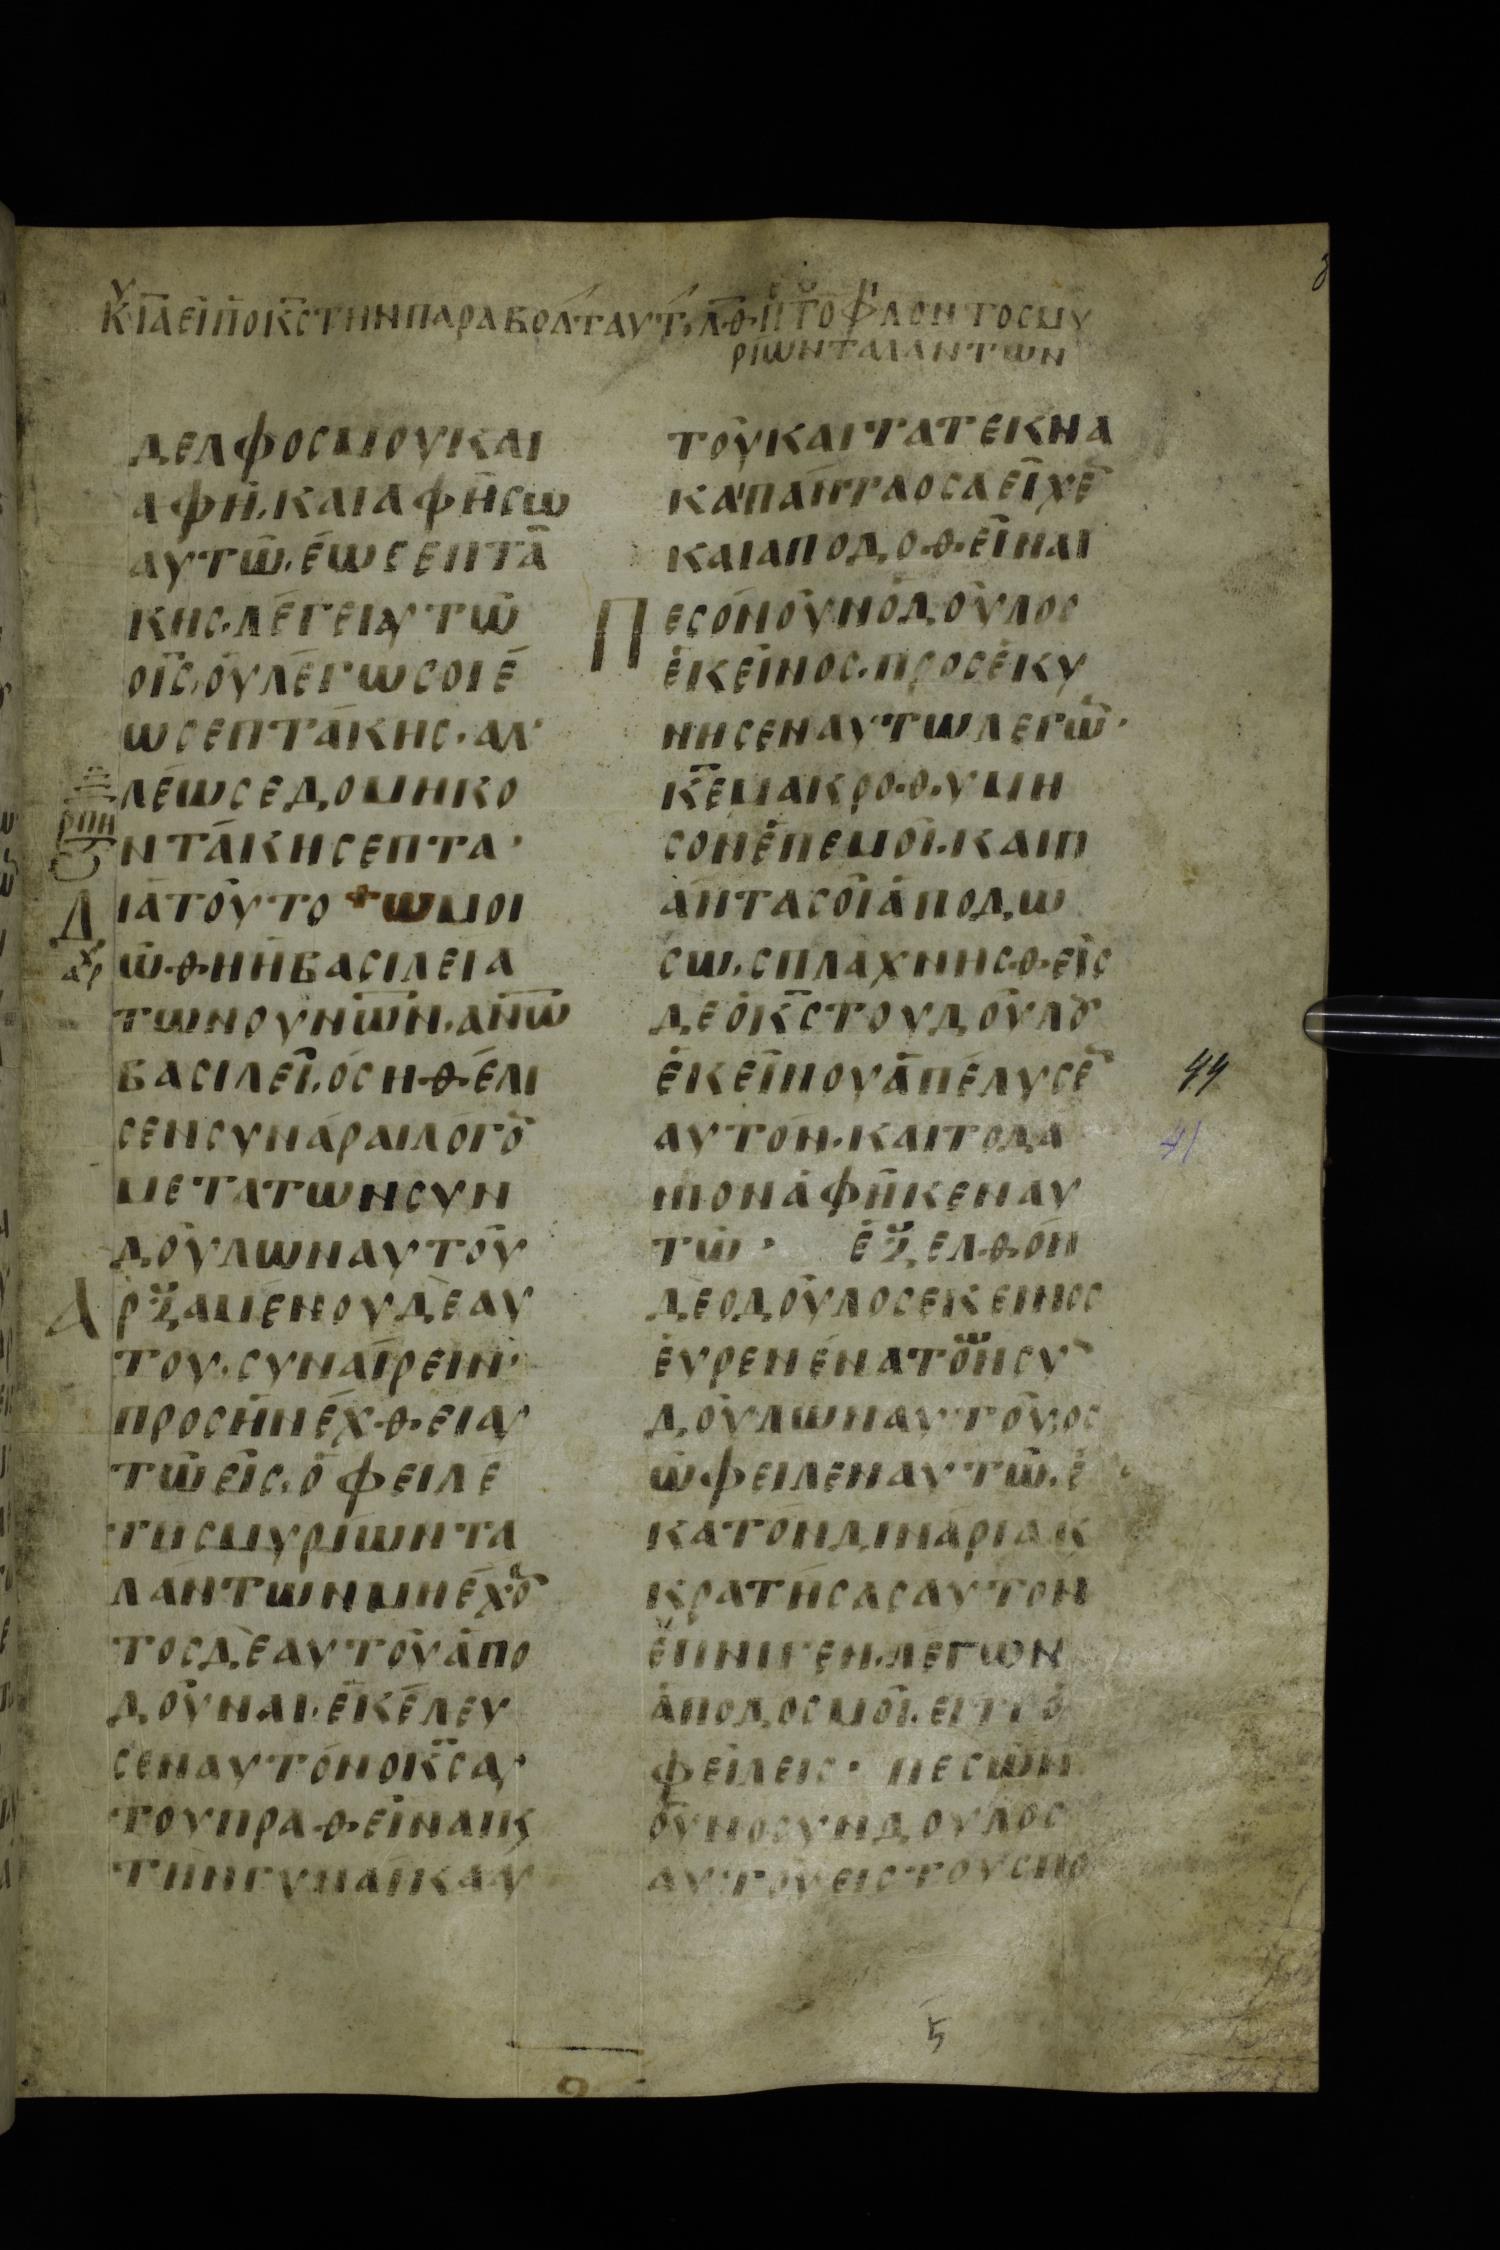 Κυ ΙΑ ΕΙΠ Ο Κ̅Σ̅ ΤΗΝ ΠΑΡΑΒΟΛ ΤΑΥΤ ΛΘ ΠΕ ΤΟΥ ΟΦΛΟΝΤΟΣ ΜΥ
ΡΙΩΝ ΤΑΛΑΝΤΩΝ
ΔΕΛΦΟΣΜΟΥΚΑΙ
ΑΦΗ. ΚΑΙΑΦΗΣΩ
ΑΥΤΩ. ΕΩΣΕΠΤΑ
ΚΗΣ. ΛΕΓΕΙΑΥΤΩ
ΟΙΣ. ΟΥΛΕΓΩΣΟΙΕ
ΩΣΕΠΤΑΚΗΣ· ΑΛ
ΛΕΩΣΕΔΟΜΗΚΟ
ΝΤΑΚΗΣΕΠΤΑ·
ΡΠΗ
Δ ΙΑΤΟΥΤΟ ΩΜΟΙ
ΑΡΧ
ΩΘΗΗΒΑΣΙΛΕΙΑ
ΤΩΝΟΥΝΩ̅Ν̅. ΑΝ̅Ω̅
ΒΑΣΙΛΕΙ. ΟΣΗΘΕΛΙ
ΣΕΝΣΥΝΑΡΑΙΛΟΓΟ
ΜΕΤΑΤΩΝΣΥΝ
ΔΟΥΛΩΝΑΥΤΟΥ
Α ΡΞΑΜΕΝΟΥΔΕΑΥ
ΤΟΥ. ΣΥΝΑΙΡΕΙΝ·
ΠΡΟΣΗΝΕΧΘΕΙΑΥ
ΤΩΕΙΣ. ΟΦΕΙΛΕ
ΤΗΣΜΥΡΙΩΝΤΑ
ΛΑΝΤΩΝΜΗΕΧΟ
ΤΟΣΔΕΑΥΤΟΥΑΠΟ
ΔΟΥΝΑΙ. ΕΚΕΛΕΥ
ΣΕΝΑΥΤΟΝΟΚ̅Σ̅ΑΥ
ΤΟΥΠΡΑΘΕΙΝΑΙΚ
ΤΗΝΓΥΝΑΙΚΑΑΥ
ΤΟΥΚΑΙΤΑΤΕΚΝΑ
ΚΑΙΠΑΝΤΑΟΣΑΕΙΧΕ
ΚΑΙΑΠΟΔΟΘΕΙΝΑΙ
Π ΕΣΟΝΟΥΝΟΔΟΥΛΟΣ
ΕΚΕΙΝΟΣ. ΠΡΟΣΕΚΥ
ΝΗΣΕΝΑΥΤΩΛΕΓΩ·
Κ̅Ε̅ΜΑΚΡΟΘΥΜΗ
ΣΟΝΕΠΕΜΟΙ. ΚΑΙΠ
ΑΝΤΑΣΟΙΑΠΟΔΩ
ΣΩ. ΣΠΛΑΧΝΗΣΘΕΙΣ
ΔΕΟΚ̅Σ̅ΤΟΥΔΟΥΛΟΥ
ΕΚΕΙΝΟΥΑΠΕΛΥΣΕ
ΑΥΤΟΝ. ΚΑΙΤΟΔΑ
ΝΙΟΝΑΦΗΚΕΝΑΥ
ΤΩ· ΕΞΕΛΘΟΝ
ΔΕΟΔΟΥΛΟΣΕΚΕΙΝΟΣ
ΕΥΡΕΝΕΝΑΤΟΝΣΥ
ΔΟΥΛΩΝΑΥΤΟΥ. ΟΣ
ΩΦΕΙΛΕΝΑΥΤΩ. Ε
ΚΑΤΟΝΔΙΝΑΡΙΑΚ
ΚΡΑΤΗΣΑΣΑΥΤΟΝ
ΕΠΝΙΓΕΝ. ΛΕΓΩΝ
ΑΠΟΔΟΣΜΟΙ. ΕΙΤΙΟ
ΦΕΙΛΕΙΣ· ΠΕΣΩΝ
ΟΥΝΟΣΥΝΔΟΥΛΟΣ
ΑΥΤΟΥΕΙΣΤΟΥΣΠΟ
44
41
5